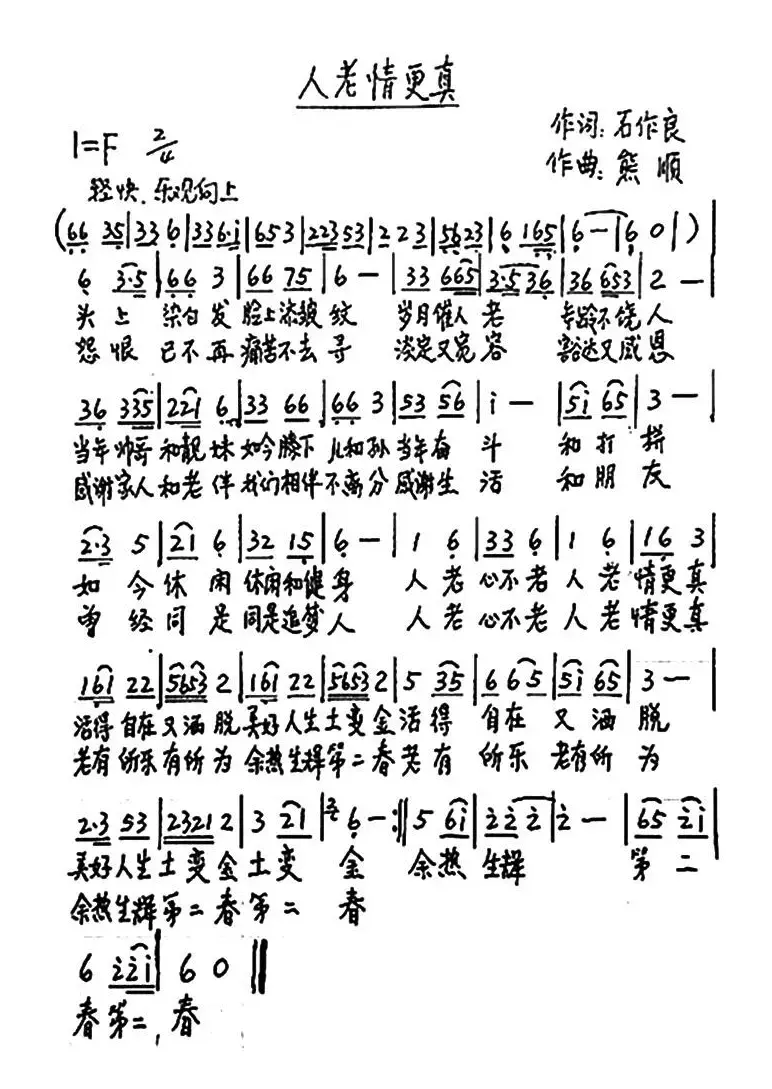 人老情更真
1=F 2/4
作词:石作良
作曲:熊顺
轻快、乐观向上
(66 35|33 6|336·i|653|22353|223|5623|6 165|6-|6 0|)
6 3·5|66 3|66 75|6 -|33 665|3·5 36|36 653|2 -|
头上 染白发 脸上添皱纹 岁月催人老 年龄不饶人
怨恨 已不再 痛苦不去寻 淡定又宽容 豁达又感恩
36 335|221 6|33 66|66 3|53 56|i -|5i 65|3 -|
当年帅哥和靓妹如今膝下儿和孙当年奋斗 和打拼
感谢家人和老伴我们相伴不离分感谢生活 和朋友
2·3 5|21 6|32 15|6 -|1 6|33 6|1 6|16 3
如今休闲休闲和健身 人老心不老人老情更真
曾经同是同是追梦人 人老心不老人老情更真
161 22|5653 2|161 22|5653 2|5 35|6 65|5i 65|3 -|
活得自在又洒脱美好人生土变金活得 自在 又洒脱
老有所乐有所为余热生辉第二春老有 所乐 老有所为
2·3 53|2321 2|3 21|3/4 6 -:||5 6i|i̇ż ż|ż -|65 żi|
美好人生土变金土变 金 余热生辉 第二
余热生辉第二春第二 春
6 żżi|6 0||
春第二,春